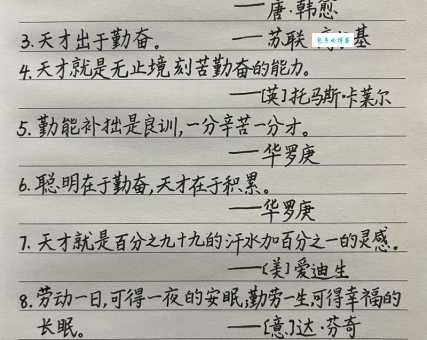 ——唐·韩愈
3.天才出于勤奋。 ——苏联 高尔基
4.天才就是无止境刻苦勤奋的能力。
——[英]托马斯·卡莱尔
5.勤能补拙是良训,一分辛苦一分才。
——华罗庚
6.聪明在于勤奋,天才在于积累。
——华罗庚
7.天才就是百分之九十九的汗水加百分之一的灵感。
——[美]爱迪生
8.劳动一日,可得一夜的安眠,勤劳一生,可得幸福的
长眠。 ——[意]达·芬奇